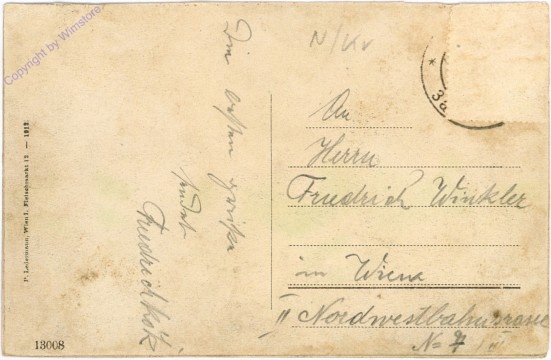 Copyright by Wimstore
N/Kv
Die besten Grüße
sendet
Friedrich
P. Ledermann, Wien I. Fleischmarkt 12. — 1912.
13008
* 3a
An
Herrn
Friedrich Winkler
in Wien
II Nordwestbahnstrasse
No 7 / II